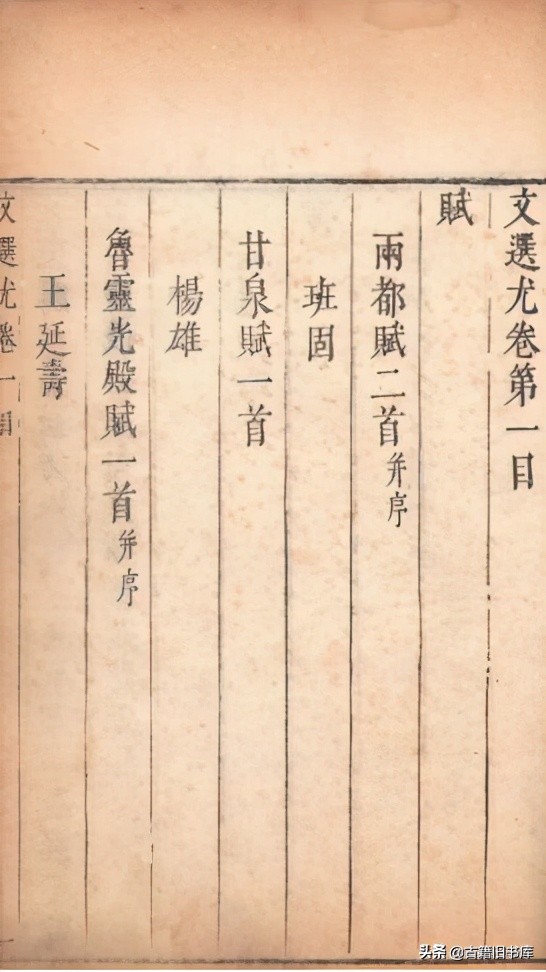 文選尤卷第一目
賦
兩都賦二首并序
班固
甘泉賦一首
楊雄
魯靈光殿賦一首并序
王延壽
文選尤卷一目
一
头条 @古籍旧书库